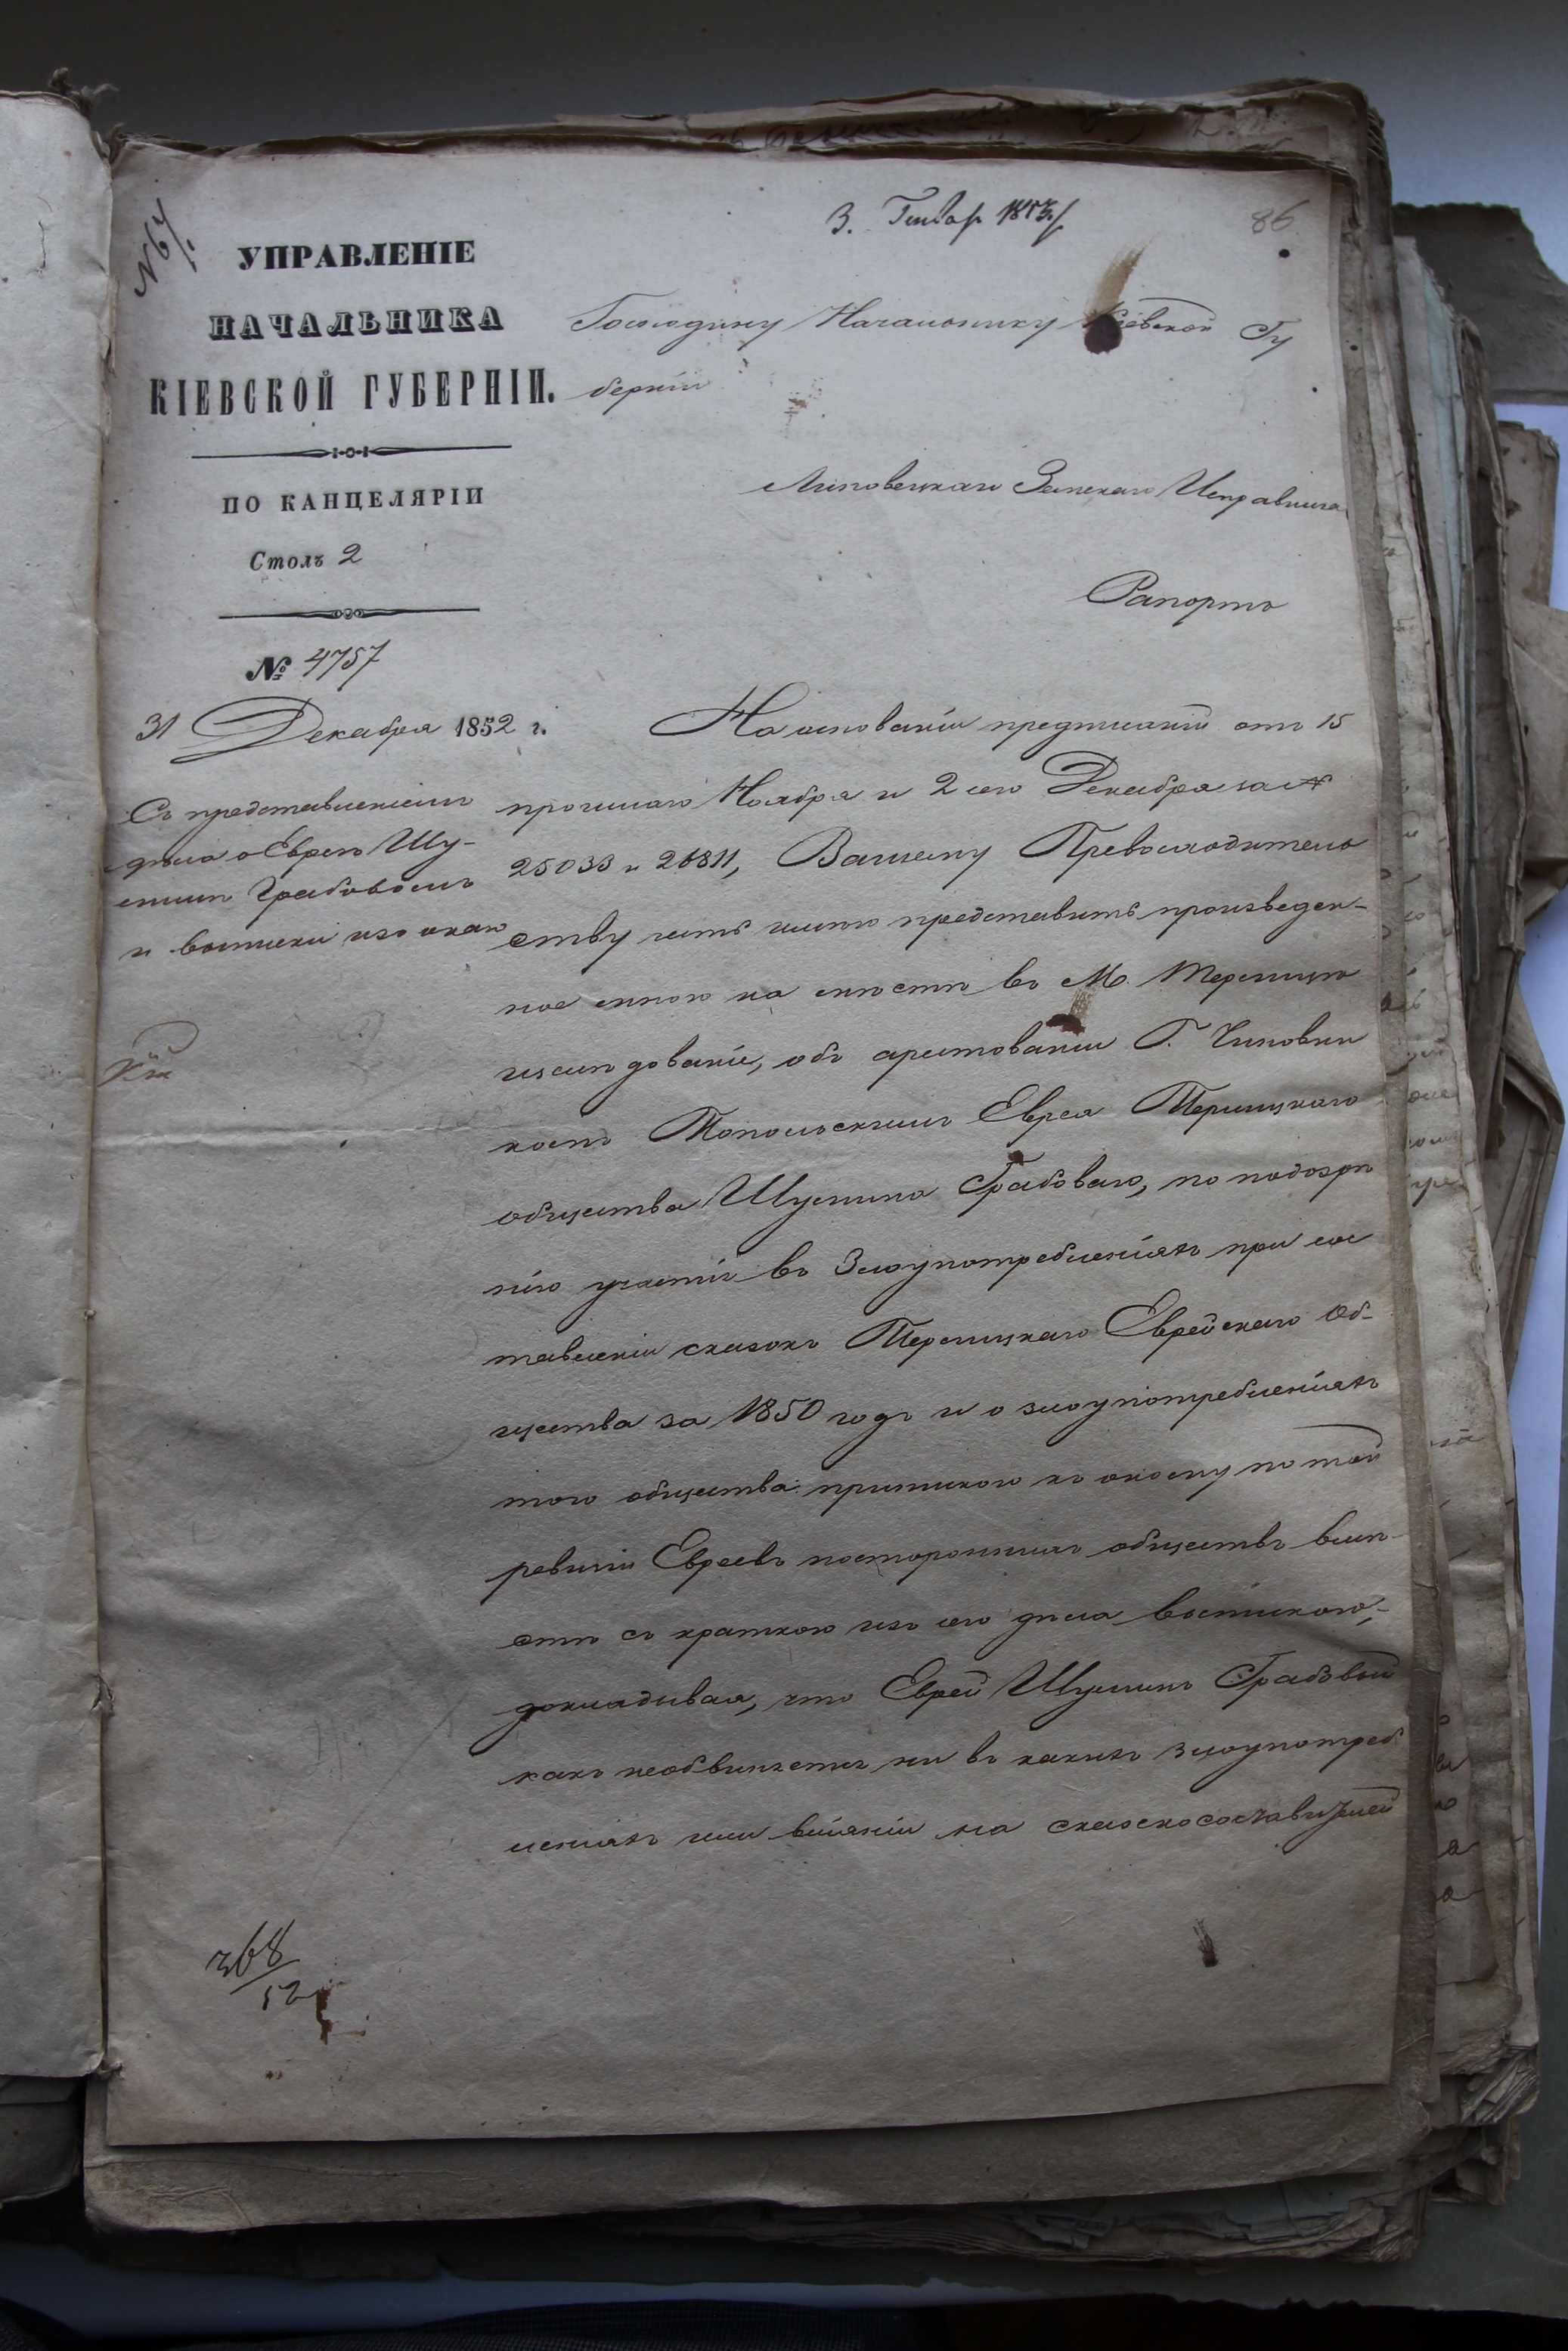 № 67.
3. Генвар 1853 г
86
УПРАВЛЕНІЕ
НАЧАЛЬНИКА
КІЕВСКОЙ ГУБЕРНІИ.
ПО КАНЦЕЛЯРІИ
Столъ 2
№ 4757
31 Декабря 1852 г.
Съ представленіемъ
дѣла о Евреѣ Шу-
лимѣ Грабовомъ
и выписки изъ онаго
368/52
Господину Начальнику Кіевской Гу
берніи
Липовецкаго Земскаго Исправника
Рапортъ
На основаніи предписаній отъ 15
прошлаго Ноября и 2 сего Декабря за №
25033 и 26811, Вашему Превосходитель
ству честь имѣю представить произведен-
ное мною на мѣстѣ въ М. Терлицѣ
изслѣдованіе, объ арестованіи Г. Чиновни
комъ Топольскимъ Еврея Терлицкаго
общества Шулима Грабоваго, по подозрѣ
нію участія въ Злоупотребленіяхъ при сос
тавленіи сказокъ Терлицкаго Еврейскаго Об-
щества за 1850 годъ и о злоупотребленіяхъ
того общества припискою къ оному по той
ревизіи Евреевъ постороннихъ обществъ вмѣ-
стѣ съ краткою изъ сего дѣла выпискою,
докладывая, что Еврей Шулимъ Грабовый
какъ необвиняется ни въ какихъ злоупотреб
леніяхъ или вліяніи на сказкосоставителей